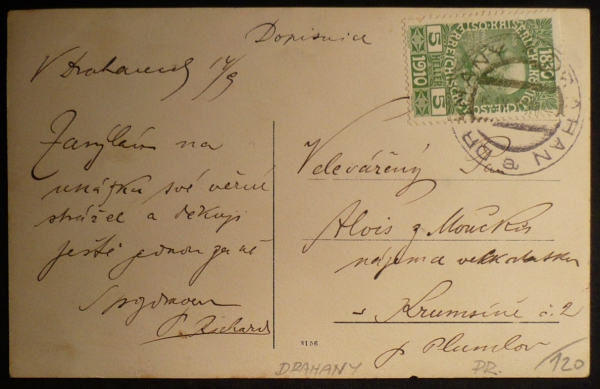 Dopisnice
V Drahanech 14/9
Zasýlám na
ukázku své věrné
strážce a děkuji
ještě jednou za ně
S pozdravem
P. Richard
Velevážený Pan
Alois z Moučků
nájemce velkostatku
Krumsíně č. 2
p. Plumlov
5 HELLER 5
1830 1910
DRAHAN
3156
DRAHANY
PR.
120